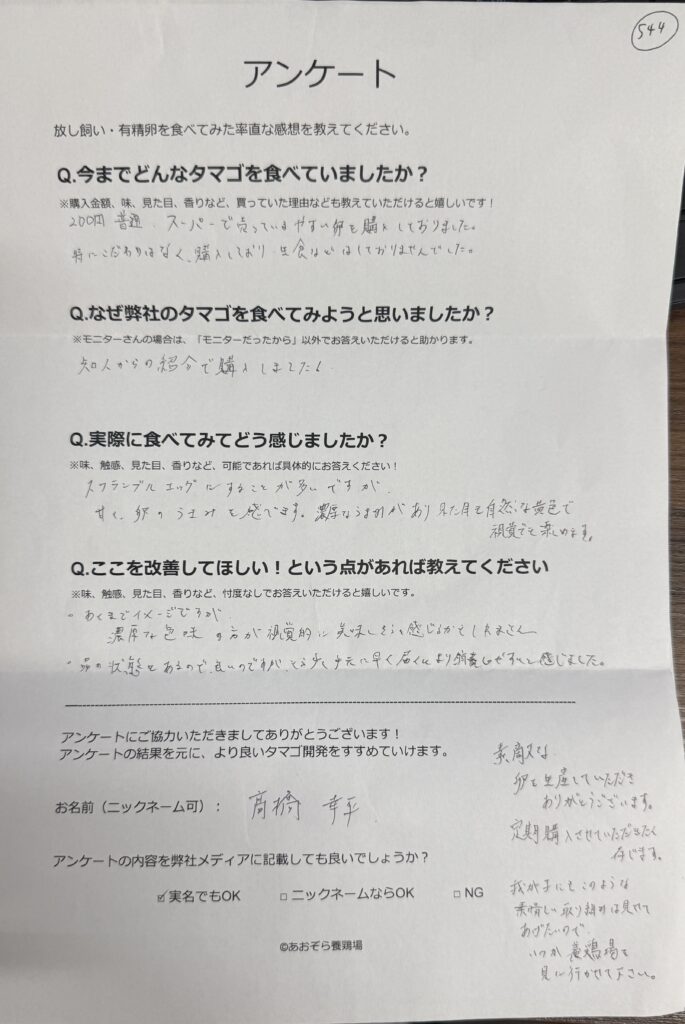 544
アンケート
放し飼い・有精卵を食べてみた率直な感想を教えてください。
Q.今までどんなタマゴを食べていましたか？
※購入金額、味、見た目、香りなど、買っていた理由なども教えていただけると嬉しいです！
200円 普通、スーパーで売っているやすい卵を購入しておりました。
特にこだわりはなく、購入しており、生食などはしておりませんでした。
Q.なぜ弊社のタマゴを食べてみようと思いましたか？
※モニターさんの場合は、「モニターだったから」以外でお答えいただけると助かります。
知人からの紹介で購入しました！
Q.実際に食べてみてどう感じましたか？
※味、触感、見た目、香りなど、可能であれば具体的にお答えください！
スクランブルエッグにすることが多いですが、
甘く、卵のうまみを感じます。濃厚なうまみがあり見た目も自然な黄色で
視覚でも楽しめます。
Q.ここを改善してほしい！という点があれば教えてください
※味、触感、見た目、香りなど、忖度なしでお答えいただけると嬉しいです。
・あくまでイメージですが
濃厚な色味の方が視覚的に美味しそうと感じるかもしれません
・卵の状態もあるので、良いのですが、もう少し手元に早く届くと より消費しやすいと感じました。
アンケートにご協力いただきましてありがとうございます！
アンケートの結果を元に、より良いタマゴ開発をすすめていけます。
お名前（ニックネーム可）： 高橋 幸平
アンケートの内容を弊社メディアに記載しても良いでしょうか？
☑実名でもOK □ニックネームならOK □NG
©あおぞら養鶏場
素敵な
卵を生産していただき
ありがとうございます。
定期購入させていただきたく
存じます。
我が子にもこのような
素晴しい取り組みは見せて
あげたいので、
いつか養鶏場を
見に行かせて下さい。